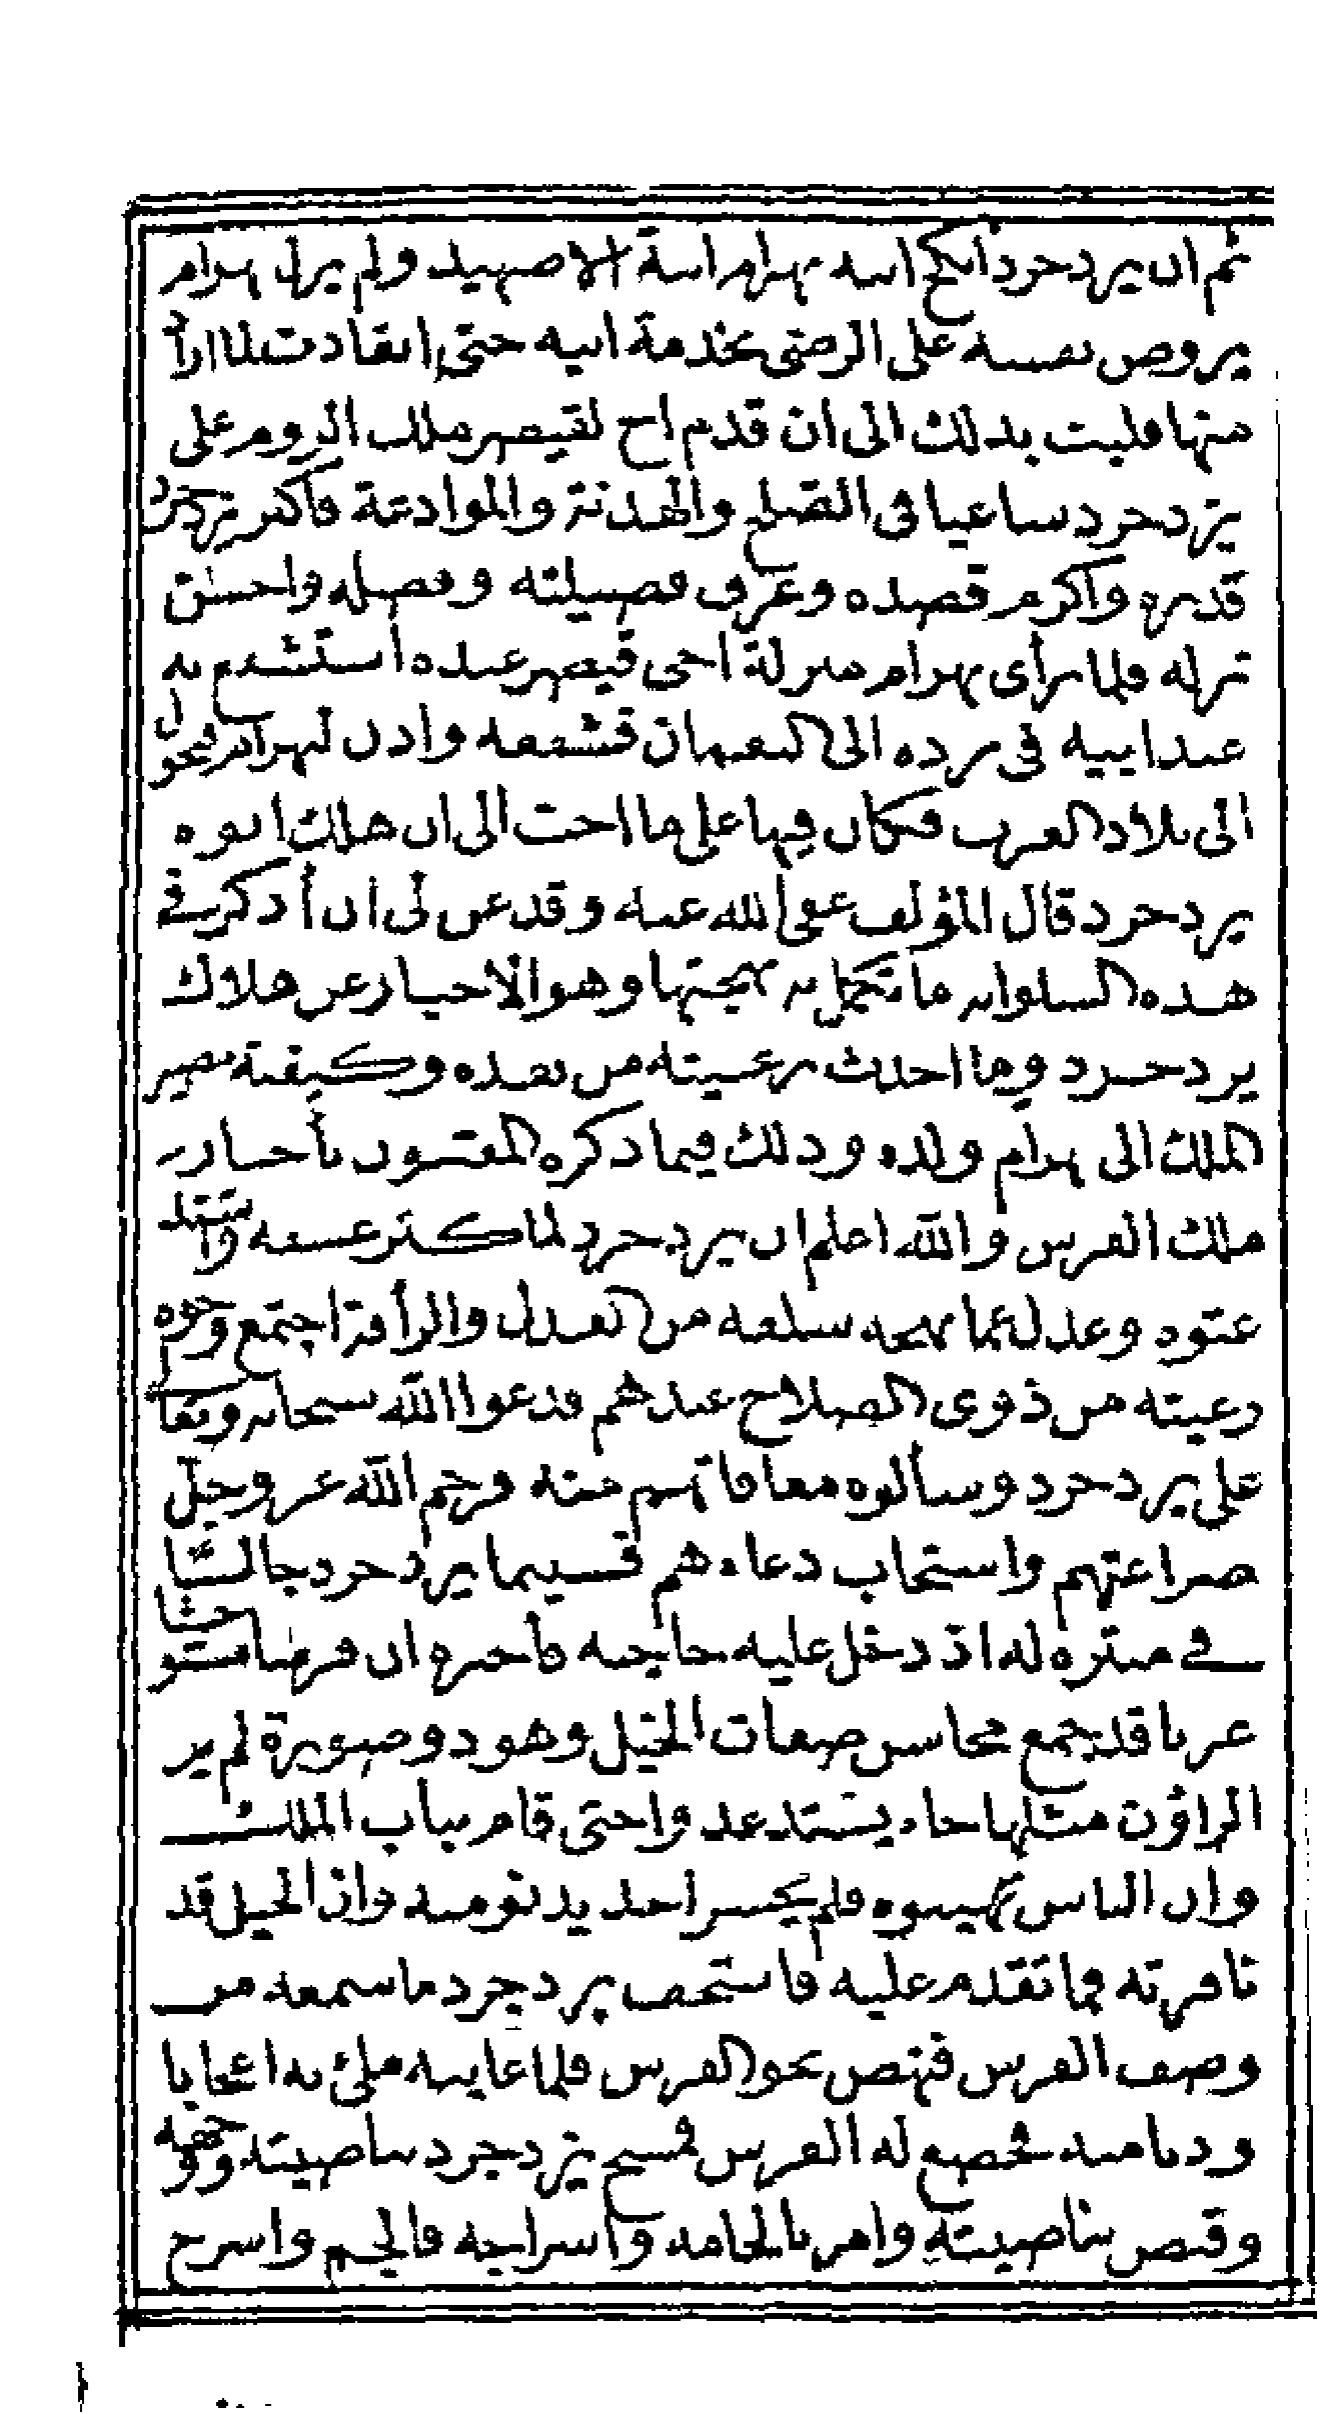 ثم ان يزدجرد انكح ابنه بهرام ابنة الاصبهبد ولم يزل بهرام
يروض نفسه على الرضى بخدمة ابيه حتى انقادت لما اراد
منها فلبث بذلك الى ان قدم اخ لقيصر ملك الروم على
يزدجرد ساعيا فى الصلح والهدنة والموادعة فاكبر يزدجرد
قدره واكرم قصده وعرف فضيلته وفضله واحسن
نزله فلما رأى بهرام منزلة اخى قيصر عنده استشفع به
عند ابيه فى رده الى النعمان فشفعه واذن لبهرام فتحول
الى بلاد العرب فكان فيها على ما احب الى ان هلك ابوه
يزدجرد قال المؤلف عفى الله عنه وقد عن لى ان أذكر فى
هذه السلوانه ما تكمل به بهجتها وهو الاخبار عن هلاك
يزدجرد وما احدث رعيته من بعده وكيفية مصير
الملك الى بهرام ولده وذلك فيما ذكره المعتنون بأخبار
ملك الفرس والله اعلم ان يزدجرد لما كثر عسفه واشتد
عتوه وعدل عما نهجه سلفه من العدل والرأفة اجتمع وجوه
رعيته من ذوى الصلاح عندهم فدعوا الله سبحانه وتعالى
على يزدجرد وسألوه معافاتهم منه فرحم الله عز وجل
ضراعتهم واستجاب دعاءهم فبينما يزدجرد جالسا
فى منتزه له اذ دخل عليه حاجبه فاخبره ان فرسا متوحشا
عريا قد جمع محاسن صفات الخيل وهو ذو صورة لم ير
الراؤن مثلها جاء يشتد عدوا حتى قام بباب الملك
وان الناس تهيبوه فلم يجسر احد يدنو منه وان الخيل قد
نافرته فما تقدم عليه فاستخف يزدجرد ما سمعه من
وصف الفرس فنهض نحو الفرس فلما عاينه ملئ به اعجابا
ودنا منه فخضع له الفرس فمسح يزدجرد ناصيته ووجهه
وقبض بناصيته وامر بالجامه واسراجه فالجم واسرج